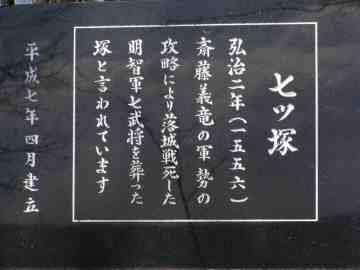 七ツ塚
弘治二年(一五五六)
斎藤義竜の軍勢の
攻略により落城戦死した
明智軍七武将を葬った
塚と言われています
平成七年四月建立